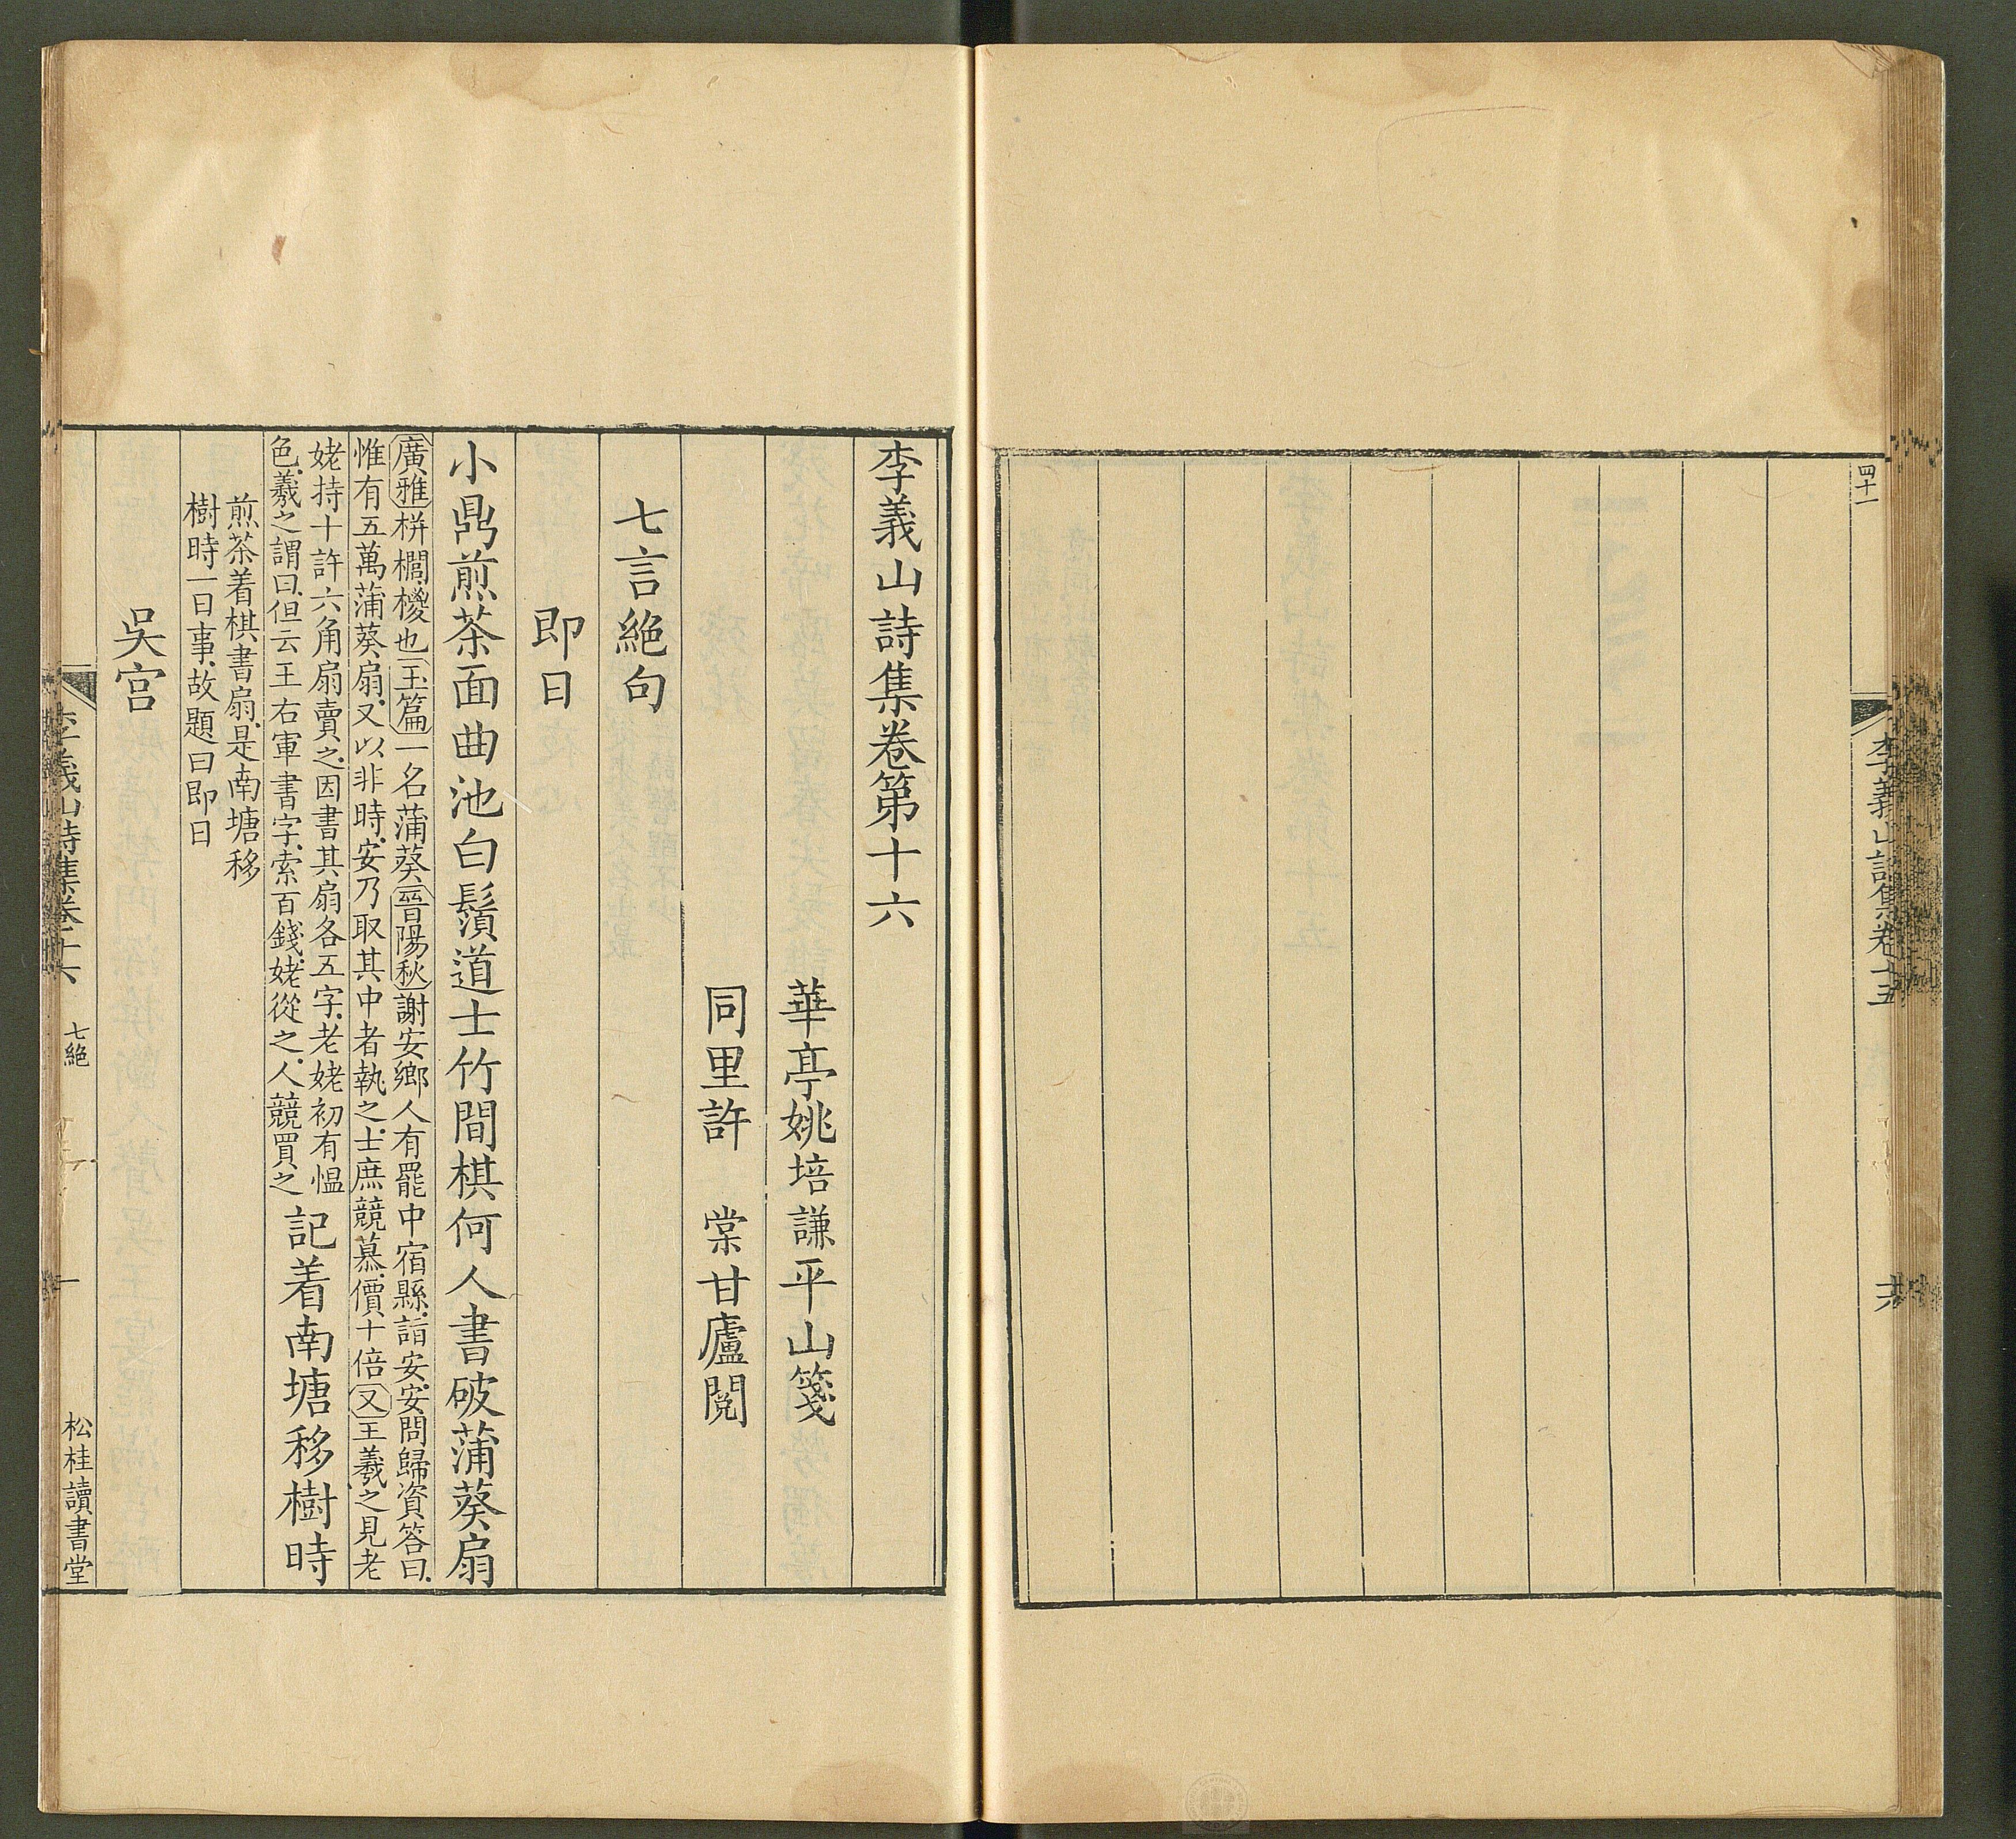 四十一
李義山詩集卷十五
李義山詩集卷第十六
華亭姚培謙平山箋
同里許 棠甘廬閱
七言絕句
即日
小鼎煎茶面曲池白鬚道士竹間棋何人書破蒲葵扇
廣雅栟櫚椶也玉篇一名蒲葵晉陽秋謝安鄉人有罷中宿縣詣安安問歸資答曰
惟有五萬蒲葵扇又以非時安乃取其中者執之士庶競慕價十倍又王羲之見老
姥持十許六角扇賣之因書其扇各五字老姥初有愠
色羲之謂曰但云王右軍書字索百錢姥從之人競買之
記着南塘移樹時
煎茶着棋書扇是南塘移
樹時一日事故題曰即日
吳宮
李義山詩集卷十六
七絕
一
松桂讀書堂